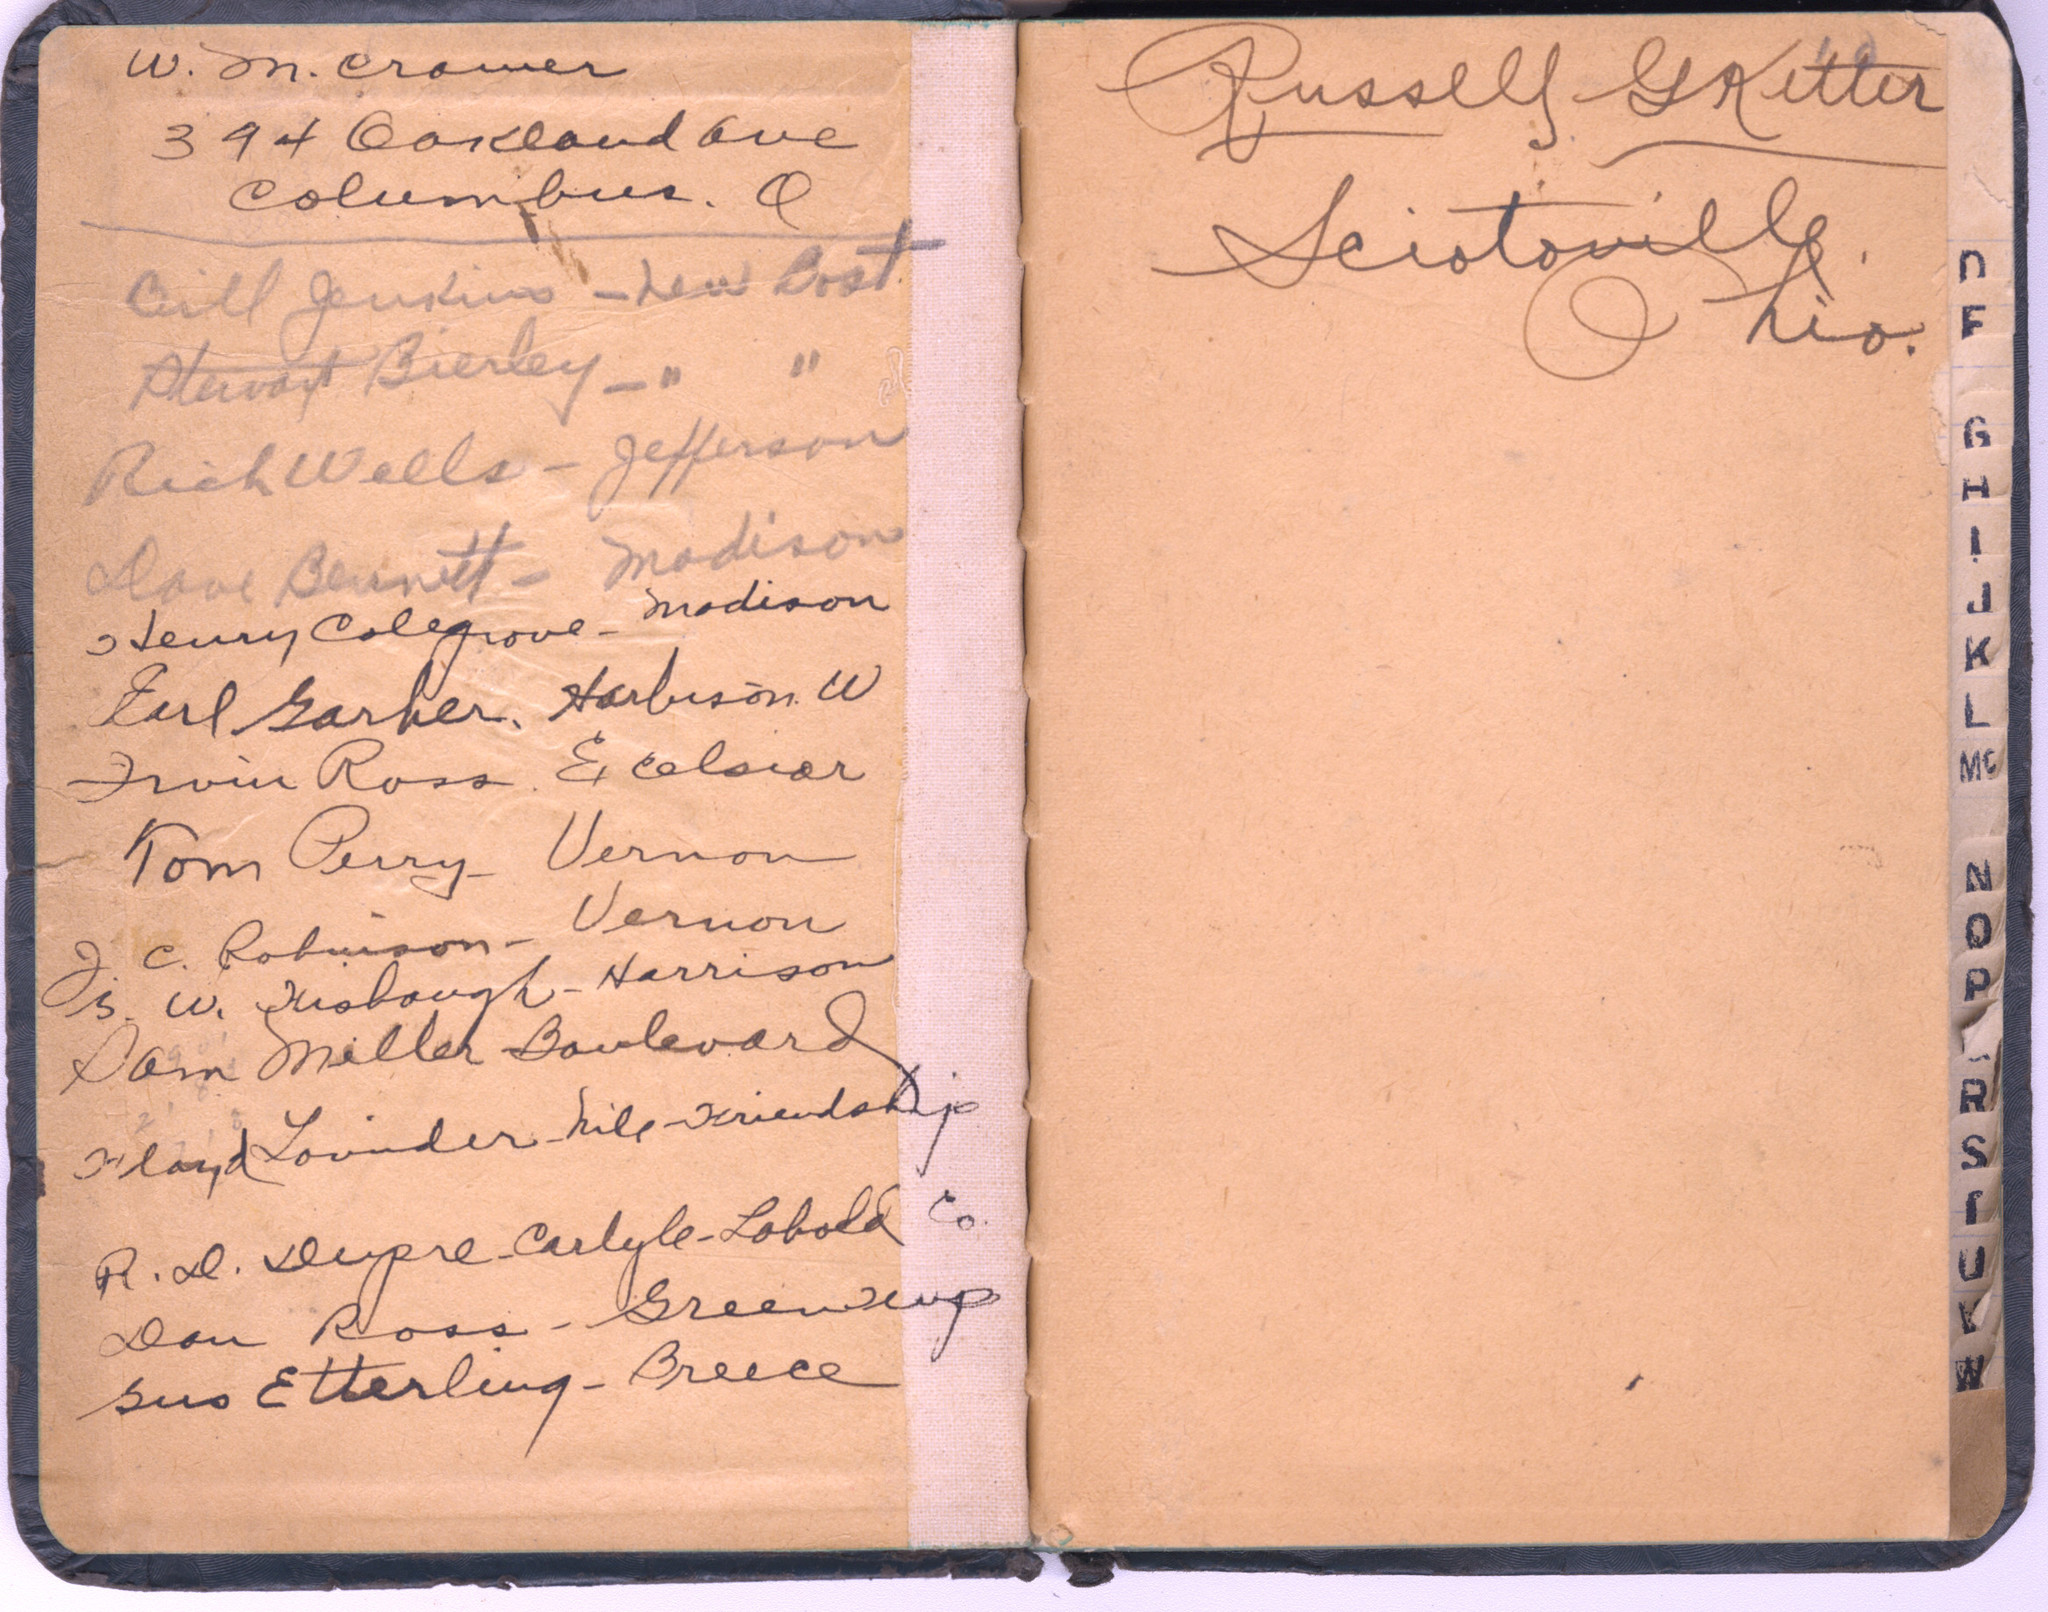 W. M. Cramer
394 Oakland Ave
Columbus. O
Cecil Jenkins - New Bost.
Stewart Bierley - " "
Rich Wells - Jefferson
Dave Bennett - Madison
Henry Colegrove - Madison
Earl Garher. Harbison. W
Irvin Ross. Excelsior
Tom Perry - Vernon
J. C. Robinson - Vernon
W. Fisbaugh - Harrison
Sam Miller - Boulevard
Floyd Lovinder - Nile - Friendship
R. D. Dupre - Carlyle - Labold Co.
Dan Ross - Greenup
Gus Etterling - Breece
Russell G Ketter
Sciotoville.
Ohio.
F
G
H
I
J
K
L
Mc
N
O
P
R
S
T
U
V
W